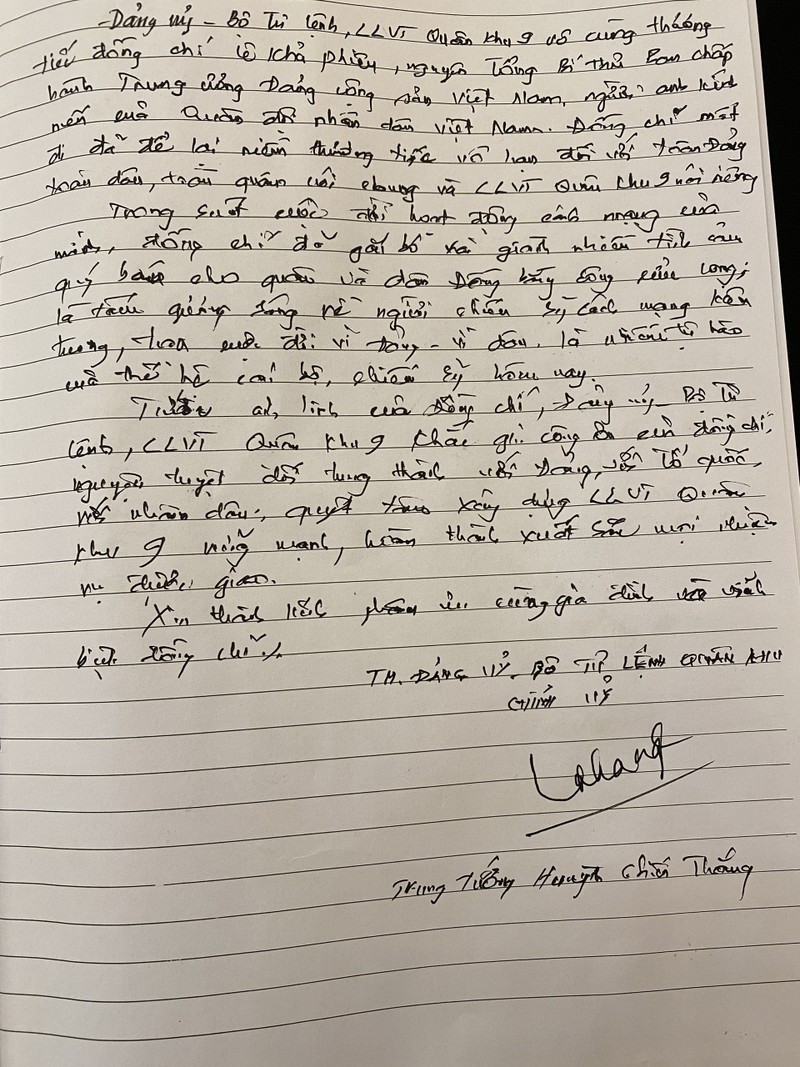 - Đảng uỷ - Bộ Tư lệnh, LLVT Quân khu 9 vô cùng thương
tiếc đồng chí Lê Khả Phiêu, nguyên Tổng Bí thư Ban chấp
hành Trung ương Đảng cộng sản Việt Nam, người anh kính
mến của Quân đội nhân dân Việt Nam. Đồng chí mất
đi đã để lại niềm thương tiếc vô hạn đối với toàn Đảng
toàn dân, toàn quân nói chung và LLVT Quân khu 9 nói riêng
Trong suốt cuộc đời hoạt động cách mạng của
mình, đồng chí đã gắn bó và giành nhiều tình cảm
quý báu cho quân và dân Đồng bằng sông cửu long;
là tấm gương sáng về người chiến sỹ cách mạng kiên
trung, trọn cuộc đời vì Đảng - vì dân. là niềm tự hào
của thế hệ cán bộ, chiến sỹ hôm nay.
Trước anh linh của đồng chí, Đảng uỷ - Bộ Tư
lệnh, LLVT Quân khu 9 khắc ghi công ơn của đồng chí,
nguyện tuyệt đối trung thành với Đảng, với Tổ quốc,
với nhân dân; quyết tâm xây dựng LLVT Quân
khu 9 vững mạnh, hoàn thành xuất sắc mọi nhiệm
vụ được giao.
Xin thành kính phân ưu cùng gia đình và vĩnh
biệt đồng chí./.
TM. ĐẢNG UỶ - BỘ TƯ LỆNH QUÂN KHU
CHÍNH UỶ
Trung tướng Huỳnh Chiến Thắng